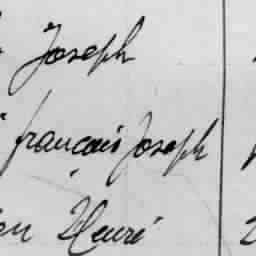 Joseph
francois Joseph
Henri